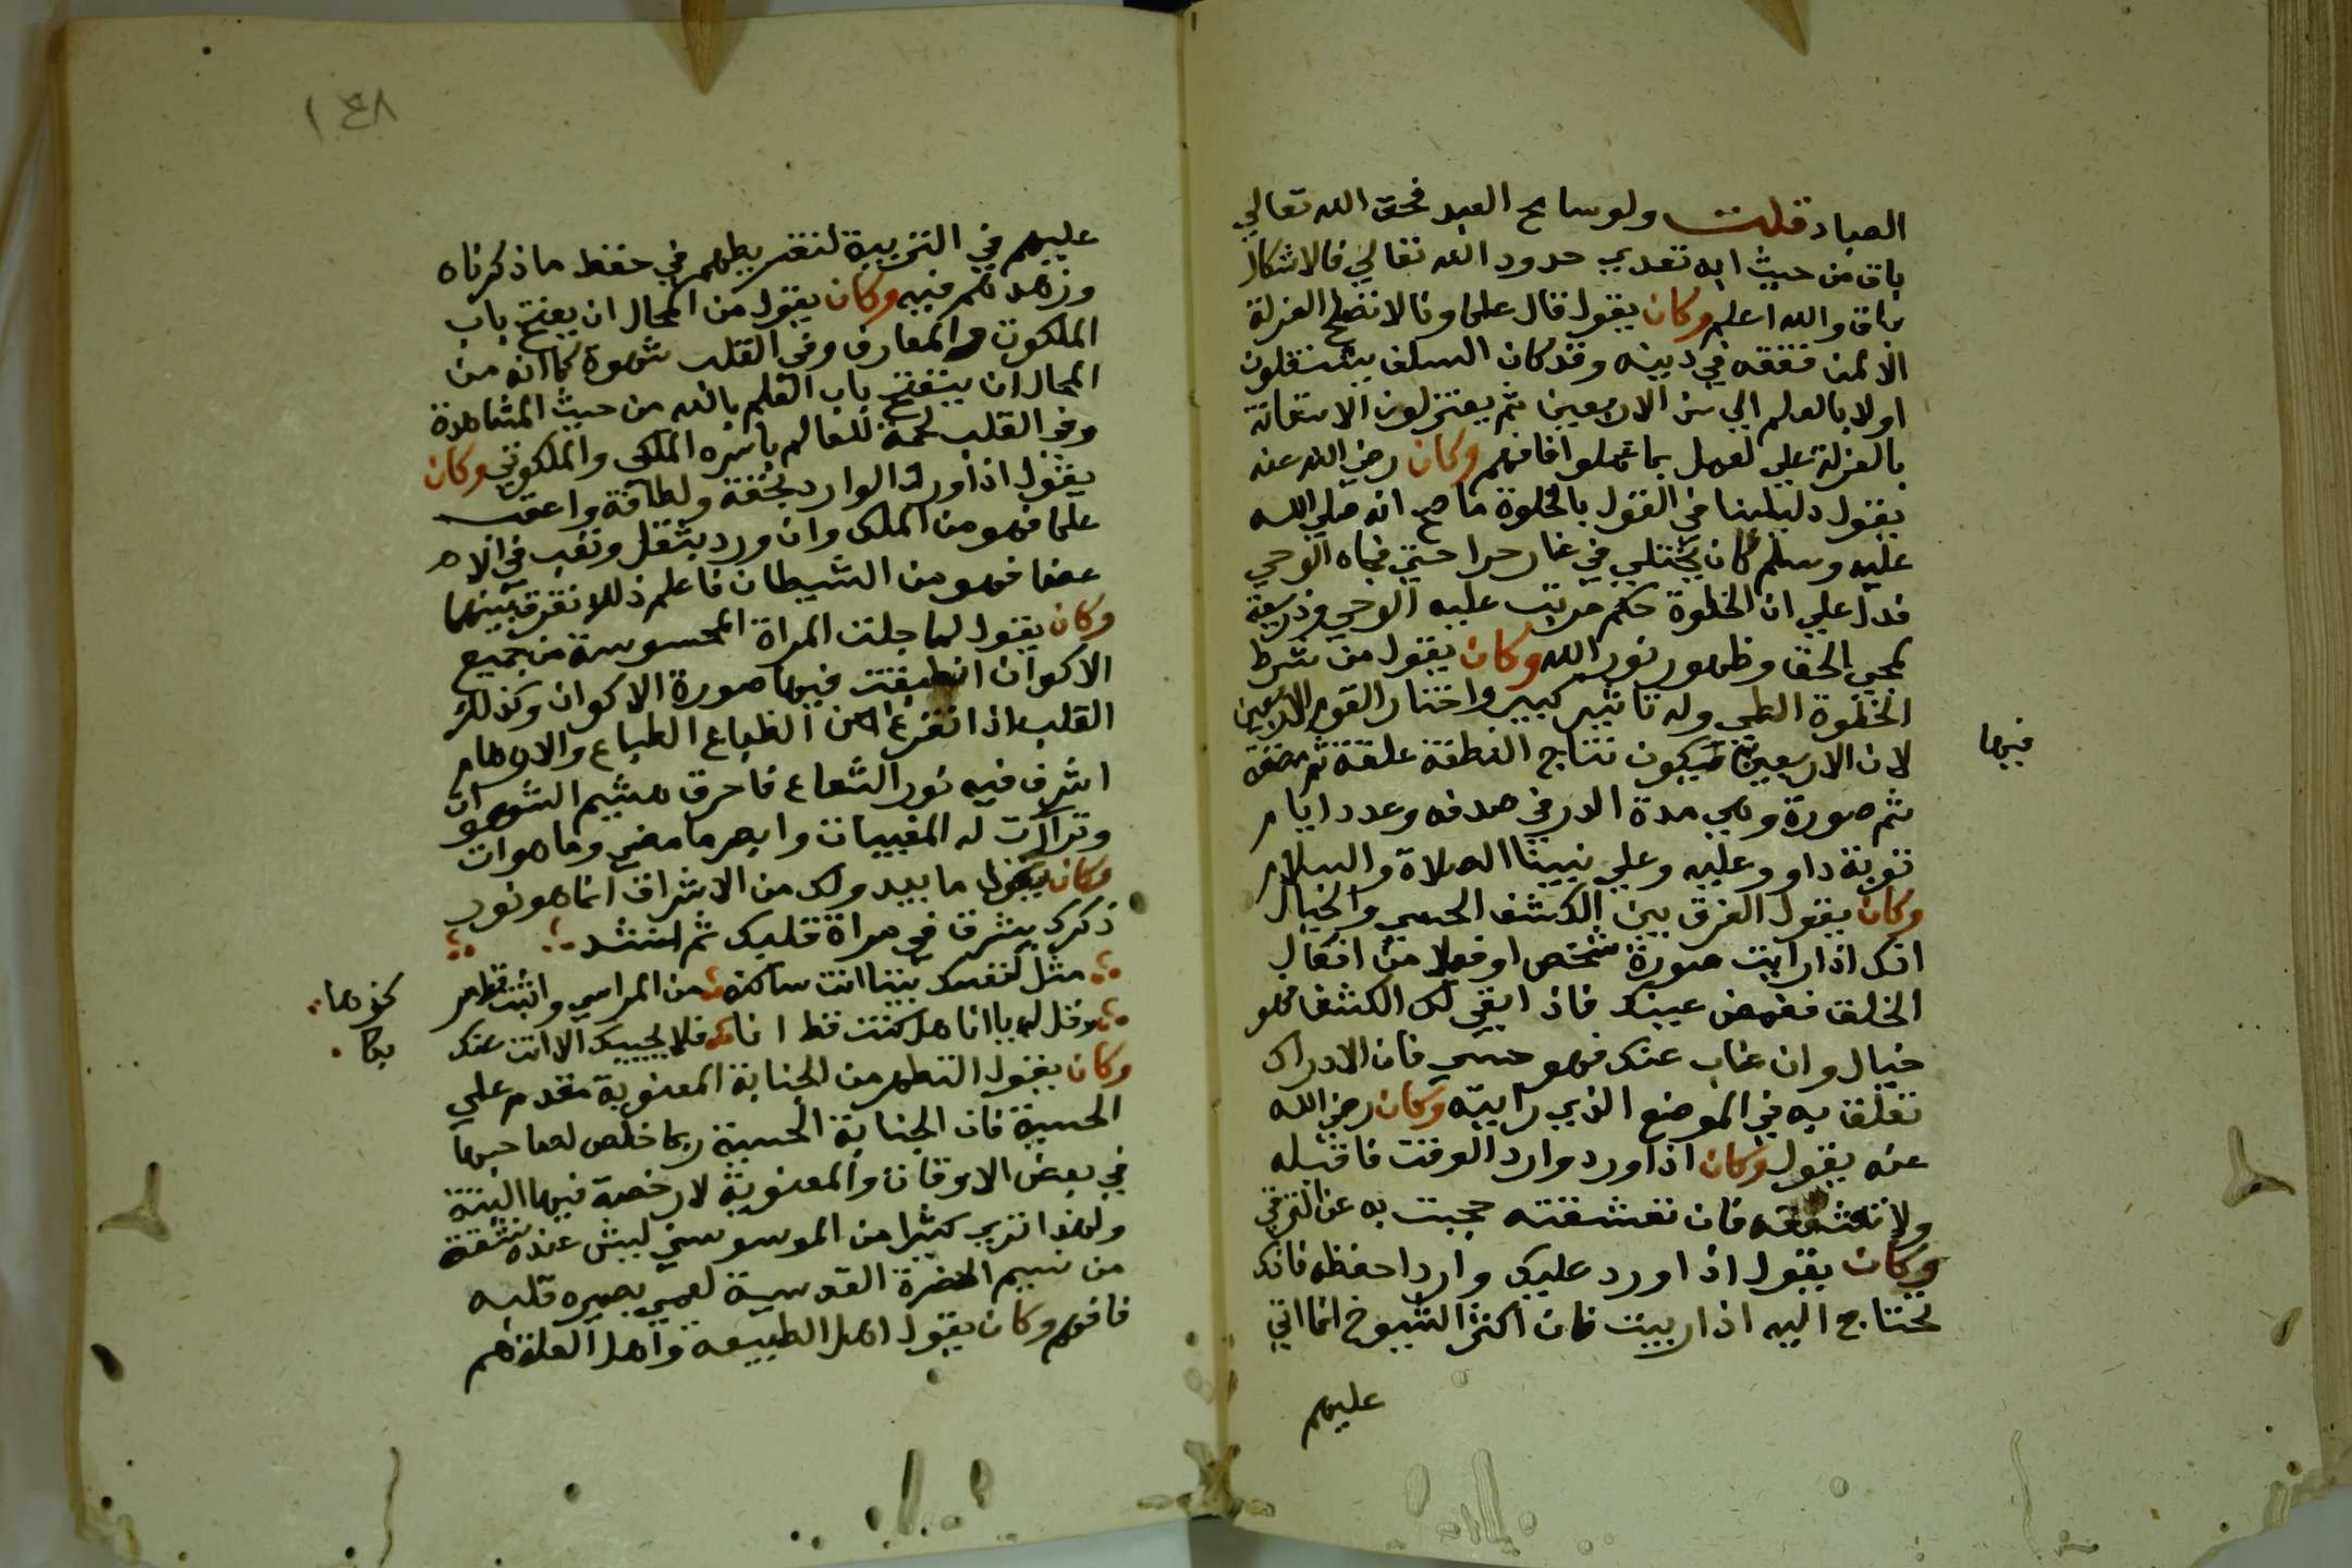 العباد قلت ولو سامح العبد فحق الله تعالي
باق من حيث انه تعدي حدود الله تعالي فالاشكال
باق والله اعلم وكان يقول قال علماونا لا تصلح العزلة
الا لمن فقه في دينه وقد كان السلف يشتغلون
اولا بالعلم الي سن الاربعين ثم يعتزلون الاستعانة
بالعزلة علي العمل بما عملوا فافهم وكان رضي الله عنه
يقول دليلنا في القول بالخلوة ما صح انه صلي الله
عليه وسلم كان يختلي في غار حرا حتي فجاه الوحي
فدل علي ان الخلوة حكم مرتب عليه الوحي وذريعة
لمجي الحق وظهور نور الله وكان يقول من شرط
الخلوة الطي وله تاثير كبير واختار القوم الاربعين
لان الاربعين فيها يكون نتاج النطفة علقة ثم مضغة
ثم صورة وهي مدة الدر في صدفه وعدد ايام
توبة داوود عليه وعلي نبينا الصلاة والسلام
وكان يقول الفرق بين الكشف الحسي والخيال
انك اذا رايت صورة شخص او فعلا من افعال
الخلق فغمض عينك فاذا بقي لك الكشف فهو
خيال وان غاب عنك فهو حسي فان الادراك
تعلق به في الموضع الذي رايته وكان رضي الله
عنه يقول وكان اذا ورد وارد الوقت فاقبله
ولا تعشقه فان تعشقته حجبت به عن الترقي
وكان يقول اذا ورد عليك وارد احفظه فانك
تحتاج اليه اذا ربيت فان اكثر الشيوخ انما اتي
عليهم
فيها
١٤٨
عليهم في التربية لتفريطهم في حفظ ما ذكرناه
وزهدهم فيه وكان يقول من المحال ان يفتح باب
الملكوت والمعارف وفي القلب شهوة كما انه من
المحال ان ينفتح باب العلم بالله من حيث المشاهدة
وفي القلب لمحة للعالم باسره الملكي والملكوتي وكان
يقول اذا ورد الوارد بخفة ولطافة واعقب
علما فهو من الملك وان ورد بثقل وتعب في الا
عضا فهو من الشيطان فاعلم ذلك لا تفرق بينهما
وكان يقول لما جلت المراة المحسوسة من جميع
الاكوان انطبقت فيها صورة الاكوان وكذلك
القلب اذا تفرغ من انطباع الطباع والاوهام
اشرف فيه نور الشعاع فاحرق هشيم الشهوات
وتراآت له المغيبات وابصر ما مضي وما هوات
وكان يقول ما يبدو لك من الاشراق انما هو نور
ذكرك يشرق في مراة قلبك ثم انشد
مثل لنفسك بيتا انت ساكنه من المراسي وانت ناظر نحوها
وقل لها يا انا هل كنت قط انا فلا يجيبك الا انت عنك بها
وكان يقول التطهر من الجنابة المعنوية مقدم علي
الحسية فان الجنابة الحسية ربما خلص لصاحبها
في بعض الاوقات والمعنوية لا رخصة فيها البتة
ولهذا تري كثيرا من الموسوسين ليس عنده نشقة
من نسيم الحضرة القدسية لعمي بصيره قلبه
فافهم وكان يقول اهل الطبيعه واهل العلة هم